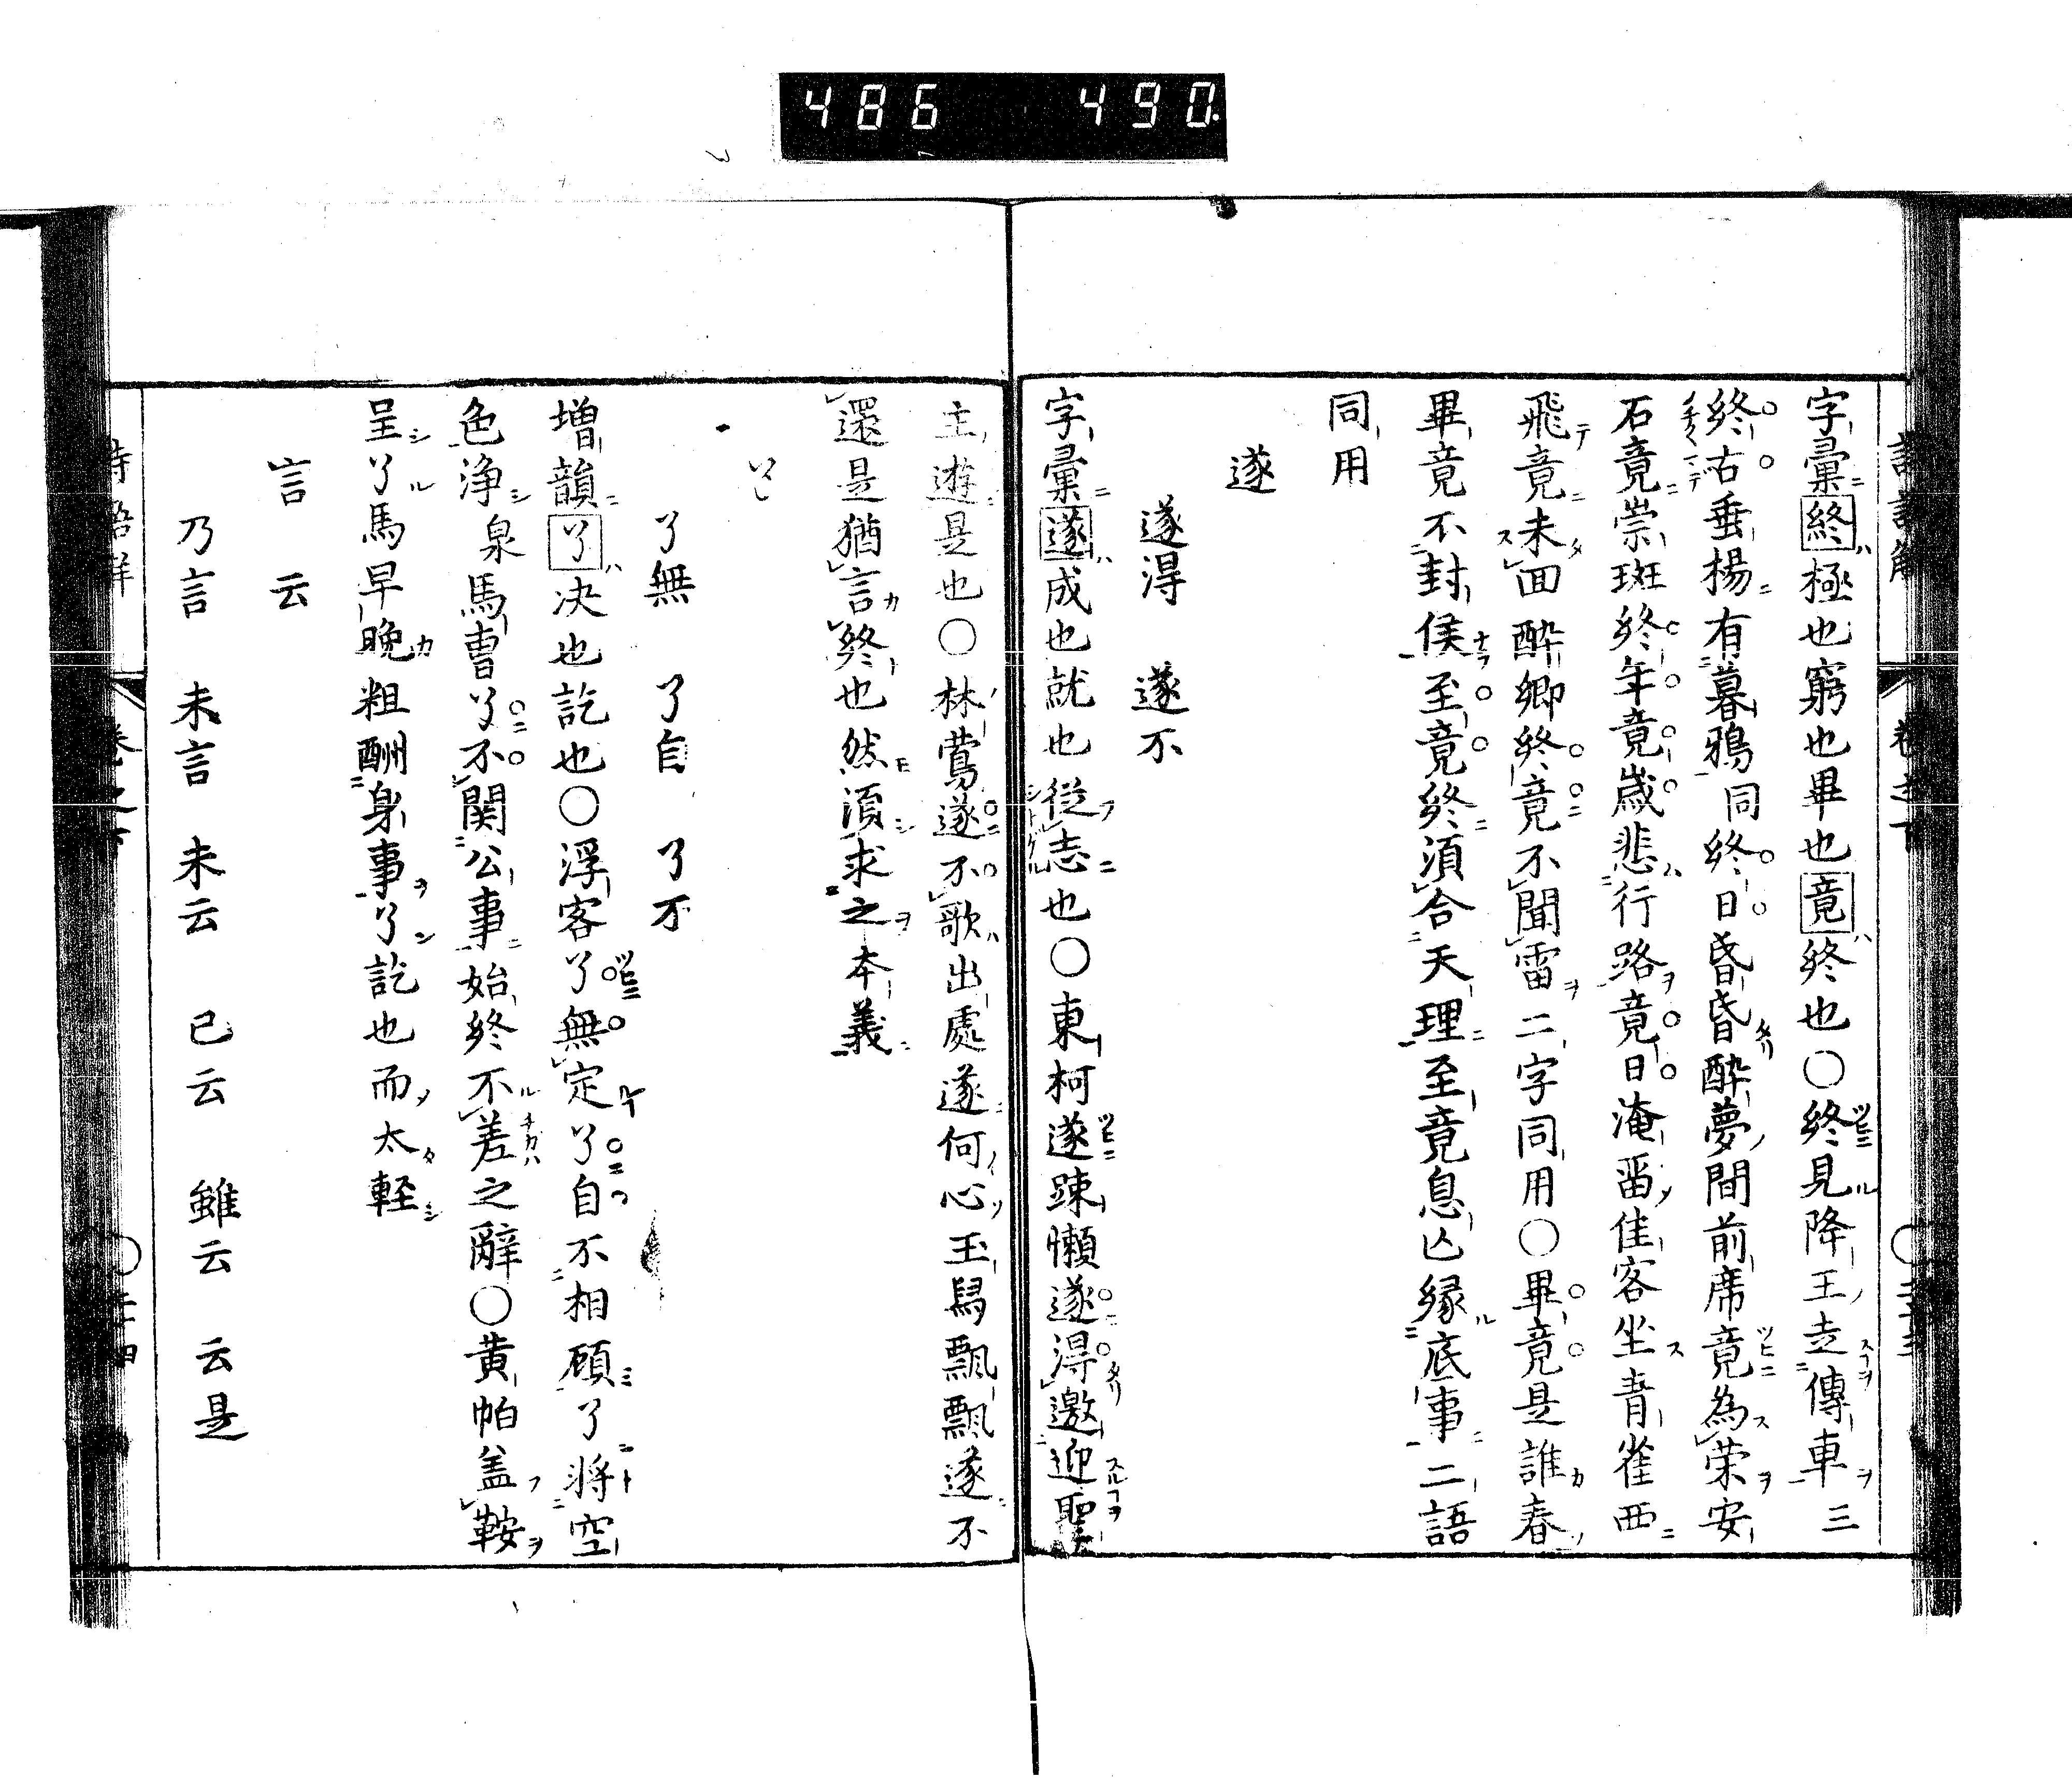 486 490
字彙終極也窮也畢也竟終也〇終見降王走傳車三
終古垂楊有暮鴉同終日昏昏醉夢間前席竟為栄安
石竟崇斑終年竟歳悲行路竟日淹畱佳客坐青雀西
飛竟未回酔卿終竟不聞雷二字同用〇畢竟是誰春
畢竟不封侯至竟終須合天理至竟息亾縁底事二語
同用
遂
遂得 遂不
字彙遂成也就也從志也〇東柯遂踈懶遂得邀迎聖
主遊是也〇林鶯遂不歌出處遂何心玉舄飄飄遂不
還是猶言終也然須求之本義
了無 了自 了不
増韻了决也訖也〇浮客了無定了自不相顧了将空
色浄泉馬曹了不関公事始終不差之辭〇黄帕盖鞍
呈了馬早晩粗酬身事了訖也而太軽
言 云
乃言 未言 未云 已云 雖云 云是